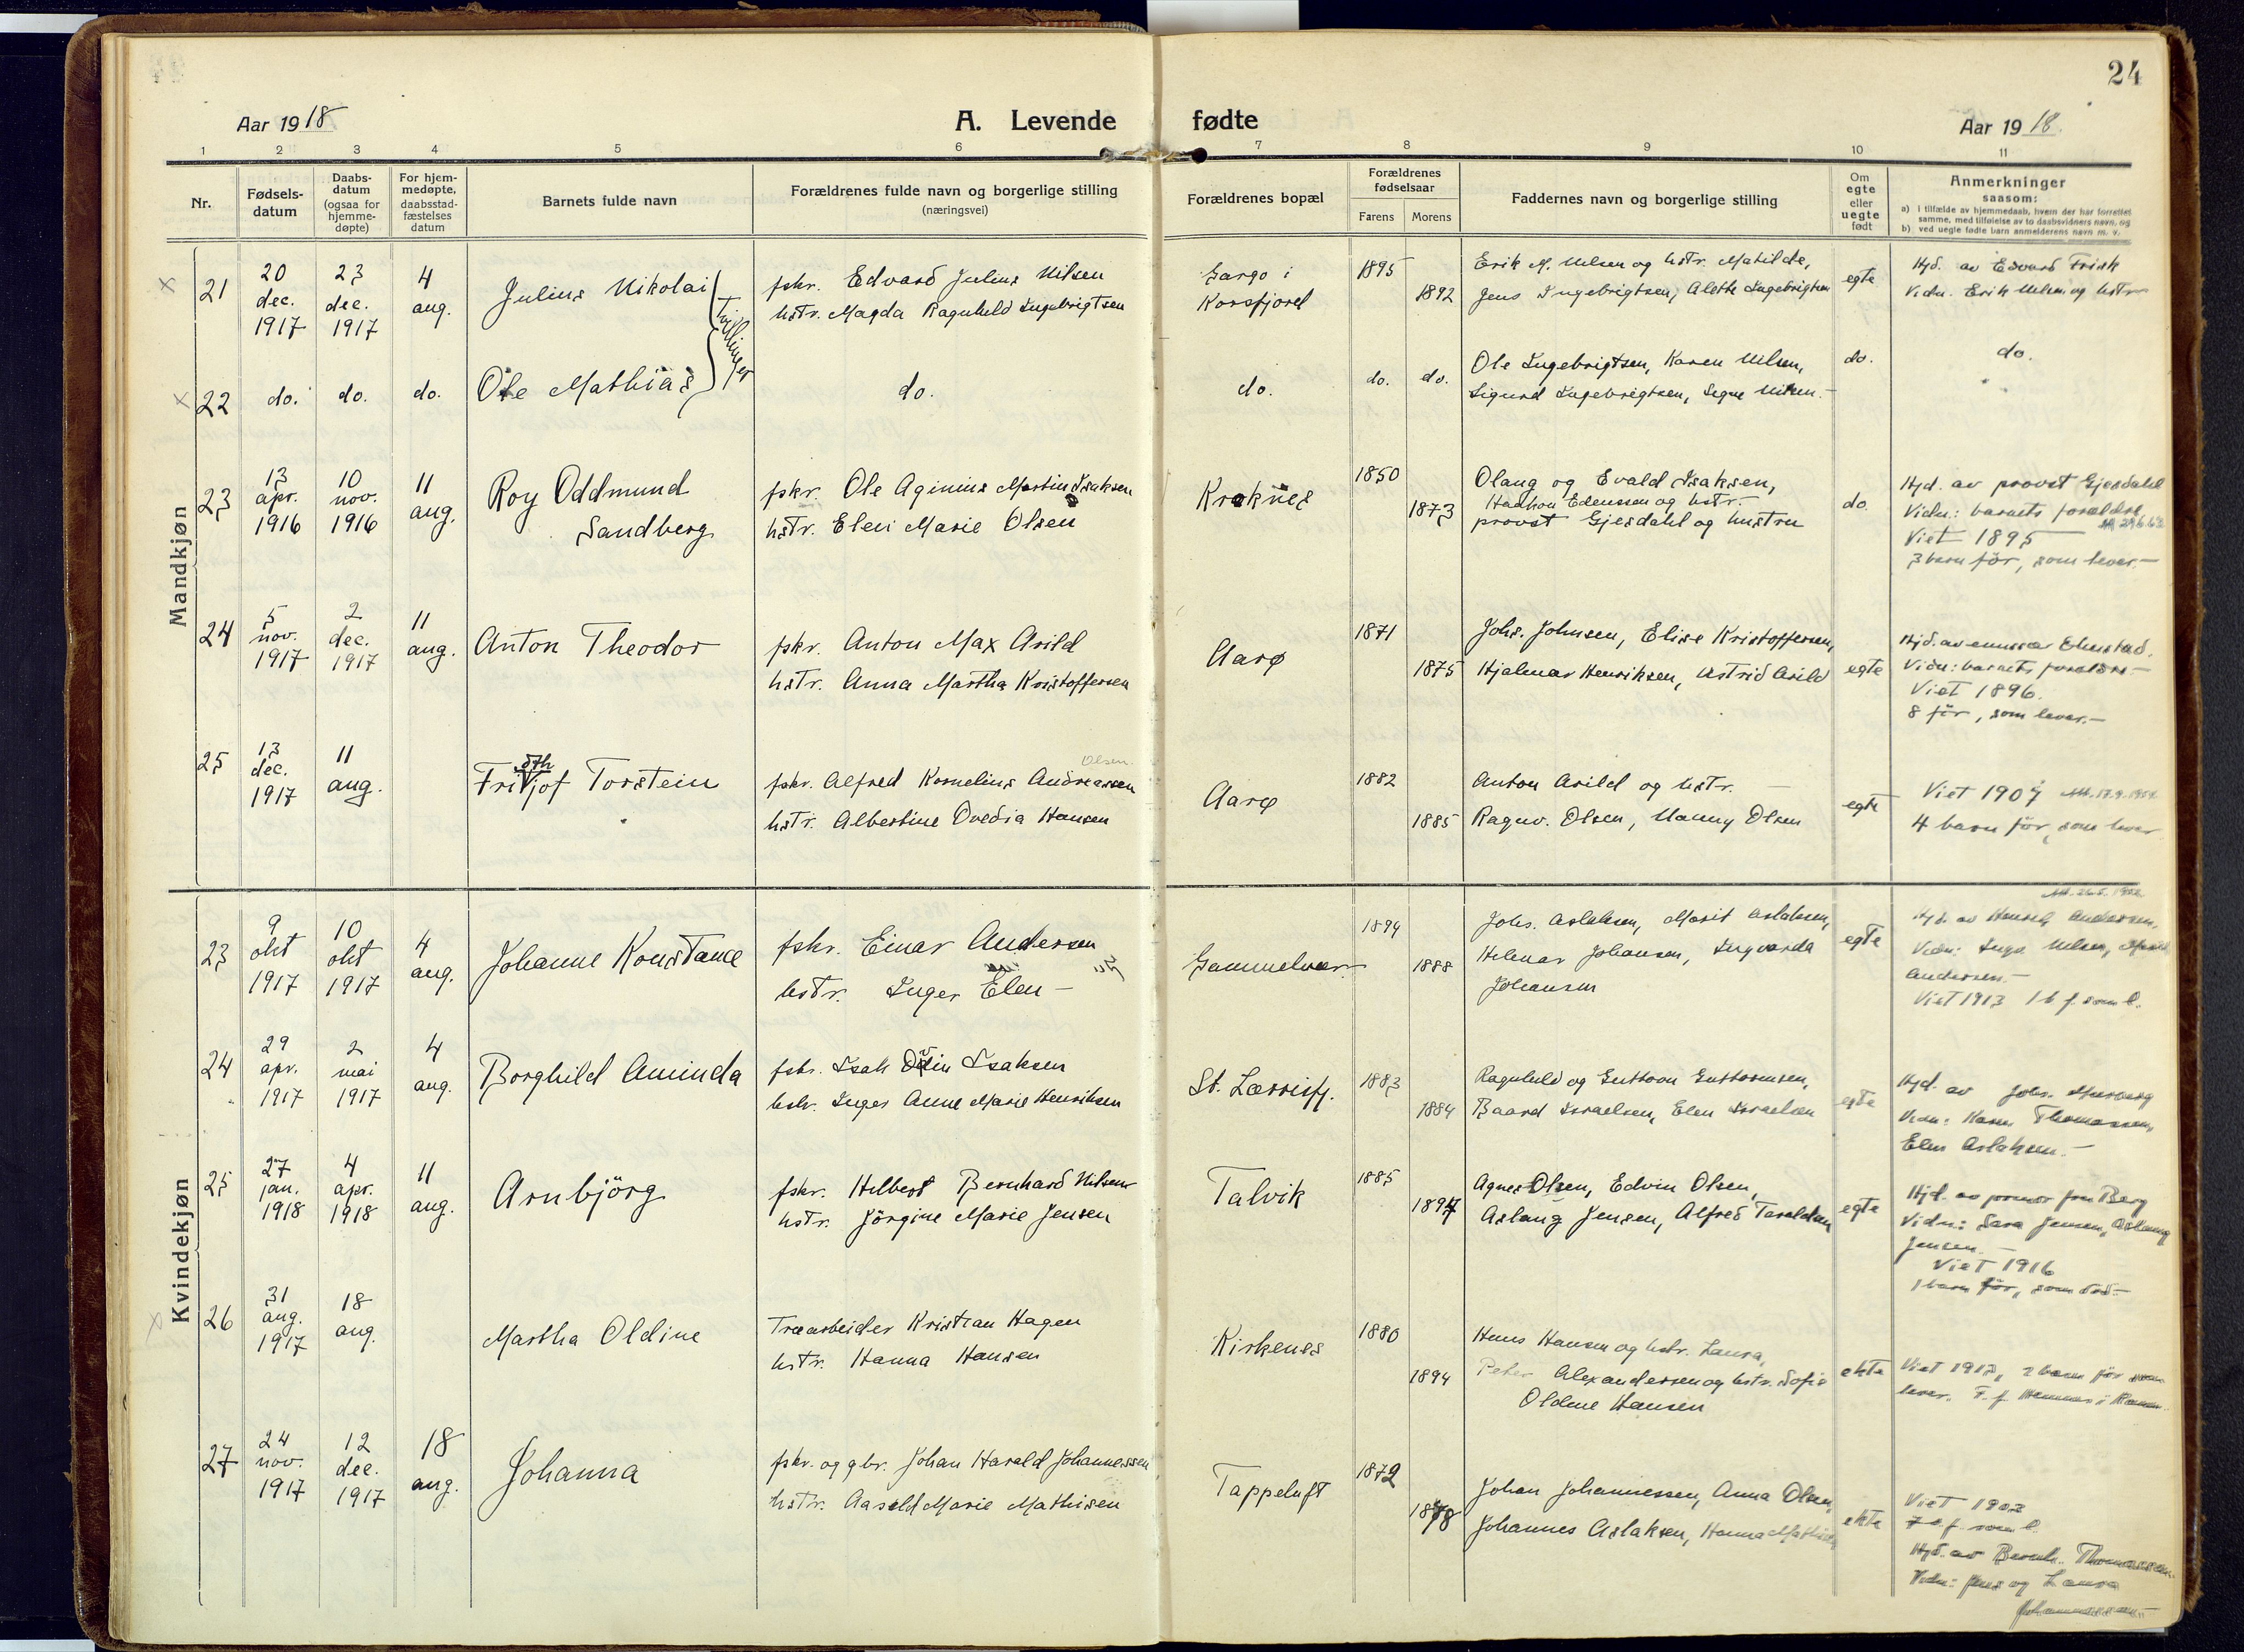 24
Aar 1918
A. Levende fødte
Aar 1918.
1 2 3 4 5 6 7 8 9 10 11
Nr.
Fødsels-
datum
Daabs-
datum
(ogsaa for
hjemme-
døpte)
For hjem-
medøpte,
daabsstad-
fæstelses
datum
Barnets fulde navn
Forældrenes fulde navn og borgerlige stilling
(næringsvei)
Forældrenes bopæl
Forældrenes
fødselsaar
Farens Morens
Faddernes navn og borgerlige stilling
Om
egte
eller
uegte
født
Anmerkninger
saasom:
a) i tilfælde av hjemmedaab, hvem der har forrettet
samme, med tilføielse av to daabsvidners navn, og
b) ved uegte fødte barn anmelderens navn m. v.
Mandkjøn
21
20
dec.
1917
23
dec.
1917
4
aug.
Julius Nikolai
Tvillinger
fskr. Edvard Julius Nilsen
hstr. Magda Ragnhild Ingebrigtsen
Gargo i
Korsfjord
1895
1892
Erik M. Nilsen og hstr. Mathilde,
Jens Ingebrigtsen, Aleth Ingebrigtsen
egte
Hjd. av Edvard Frisk
Vidn. Erik Nilsen og hstr
22
do.
do.
do.
Ole Mathias
do.
do.
do. do.
Ole Ingebrigtsen, Karen Nilsen,
Sigurd Ingebrigtsen, Signe Nilsen.-
do.
do.
23
13
apr.
1916
10
nov.
1916
11
aug.
Roy Oddmund
Sandberg
fskr. Ole Aginius Martin Isaksen
hstr. Elen Marie Olsen
Kroknes
1850
1873
Olaug og Evald Isaksen,
Haakon Edenssen og hstr.
provst Gjesdahl og hustru
do.
Hjd. av provst Gjesdahl
Vidn.: barnets forældre
Viet 1895
3 barn før, som lever.-
24
5
nov.
1917
2
dec.
1917
11
aug.
Anton Theodor
fskr. Anton Max Arild
hstr. Anna Martha Kristoffersen
Aarø
1871
1875
Johs. Johnsen, Elise Kristoffersen,
Hjalmar Henriksen, Astrid Arild
egte
Vidn: barnets forældre.-
Viet 1896.
8 før, som lever.-
25
13
dec.
1917
11
aug.
Frithjof Torstein
Olsen
fskr. Alfred Kornelius Andreassen
hstr. Albertine Ovedia Hansen
Aarø
1882
1885
Anton Arild og hstr.
Ragnv. Olsen, Nanny Olsen
egte
Viet 1907
4 barn før, som lever
Kvindekjøn
23
9
okt
1917
10
okt
1917
4
aug.
Johanne Konstance
fskr. Einar Andersen
hstr. Inger Elen -
Gammelvær
1894
1888
Johs. Aslaksen, Marit Aslaksen,
Hilmar Johansen, Ingvarda
Johansen
egte
Andersen.-
Viet 1913 1 b f. som l.
24
29
apr.
1917
2
mai
1917
4
aug.
Borghild Aminda
fskr. Isak Isaksen
hstr. Inger Anne Marie Henriksen
St. Lerrisfj.
1883
1884
Ragnhild og Guttorm Guttormsen,
Baard Israelsen, Elen Israelsen
egte
Hjd. av Johs.
Vidn: Karen Thomassen,
Elen Aslaksen.-
25
27
jan.
1918
4
apr.
1918
11
aug.
Arnbjörg
fskr. Hilbert Bernhard Nilsen
hstr. Jörgine Marie Jensen
Talvik
1885
1894
Agnes Olsen, Edvin Olsen,
Aslaug Jensen, Alfred Taraldsen
egte
Hjd. av jormor fru Berg
Vidn: Sara Jensen, Aslaug
Jensen.-
Viet 1916
1 barn før, som död.-
26
31
aug.
1917
18
aug.
Martha Oldine
Træarbeider Kristian Hagen
hstr. Hanna Hansen
Kirkenes
1880
1894
Hans Hansen og hstr. Laura,
Peter Alexandersen og hstr. Sofie
Oldine Hansen
ekte
Viet 1917, 2 barn før som
lever.
27
24
nov.
1917
12
dec.
1917
18
aug.
Johanna
fskr. og gbr. Johan Harald Johannessen
hstr. Aaseld Marie Mathisen
Tappeluft
1872
1878
Johan Johannessen, Anna Olsen,
Johannes Aslaksen, Hanna Mathisen
ekte
Viet 1902
7 b f. som l.
Hjd. av Bernh. Thomassen
Vidn: Jens og Laura
Johannessen